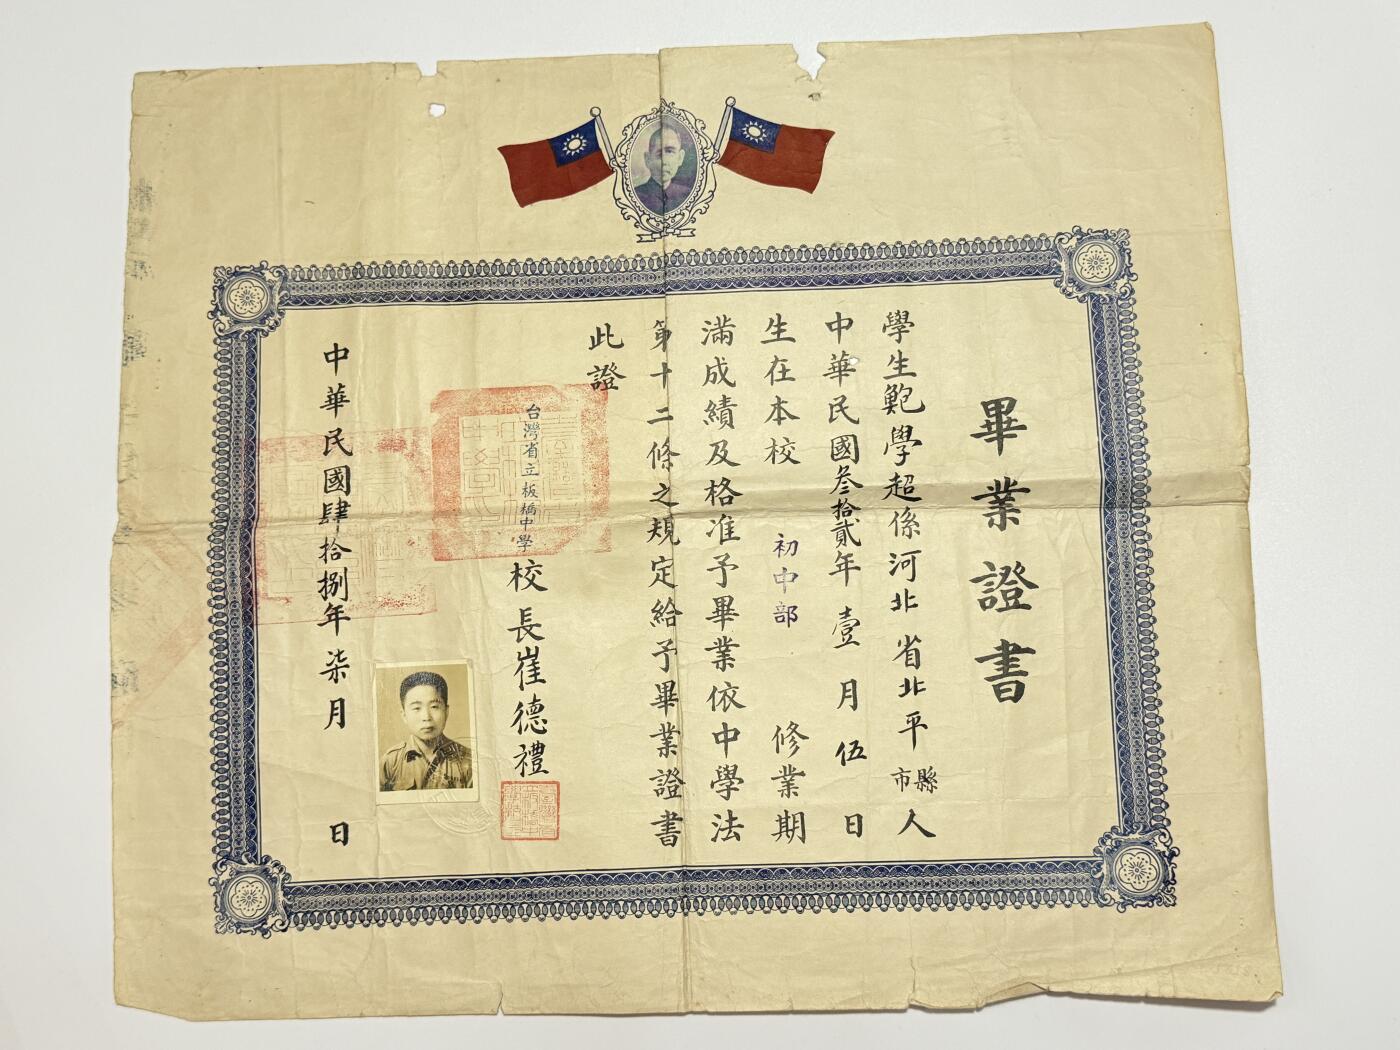 畢業證書
學生鮑學超係河北省北平縣市人
中華民國叁拾貳年壹月伍日
生在本校初中部修業期
滿成績及格准予畢業依中學法
第十二條之規定給予畢業證書
此證
台灣省立板橋中學
校長崔德禮
中華民國肆拾捌年柒月日